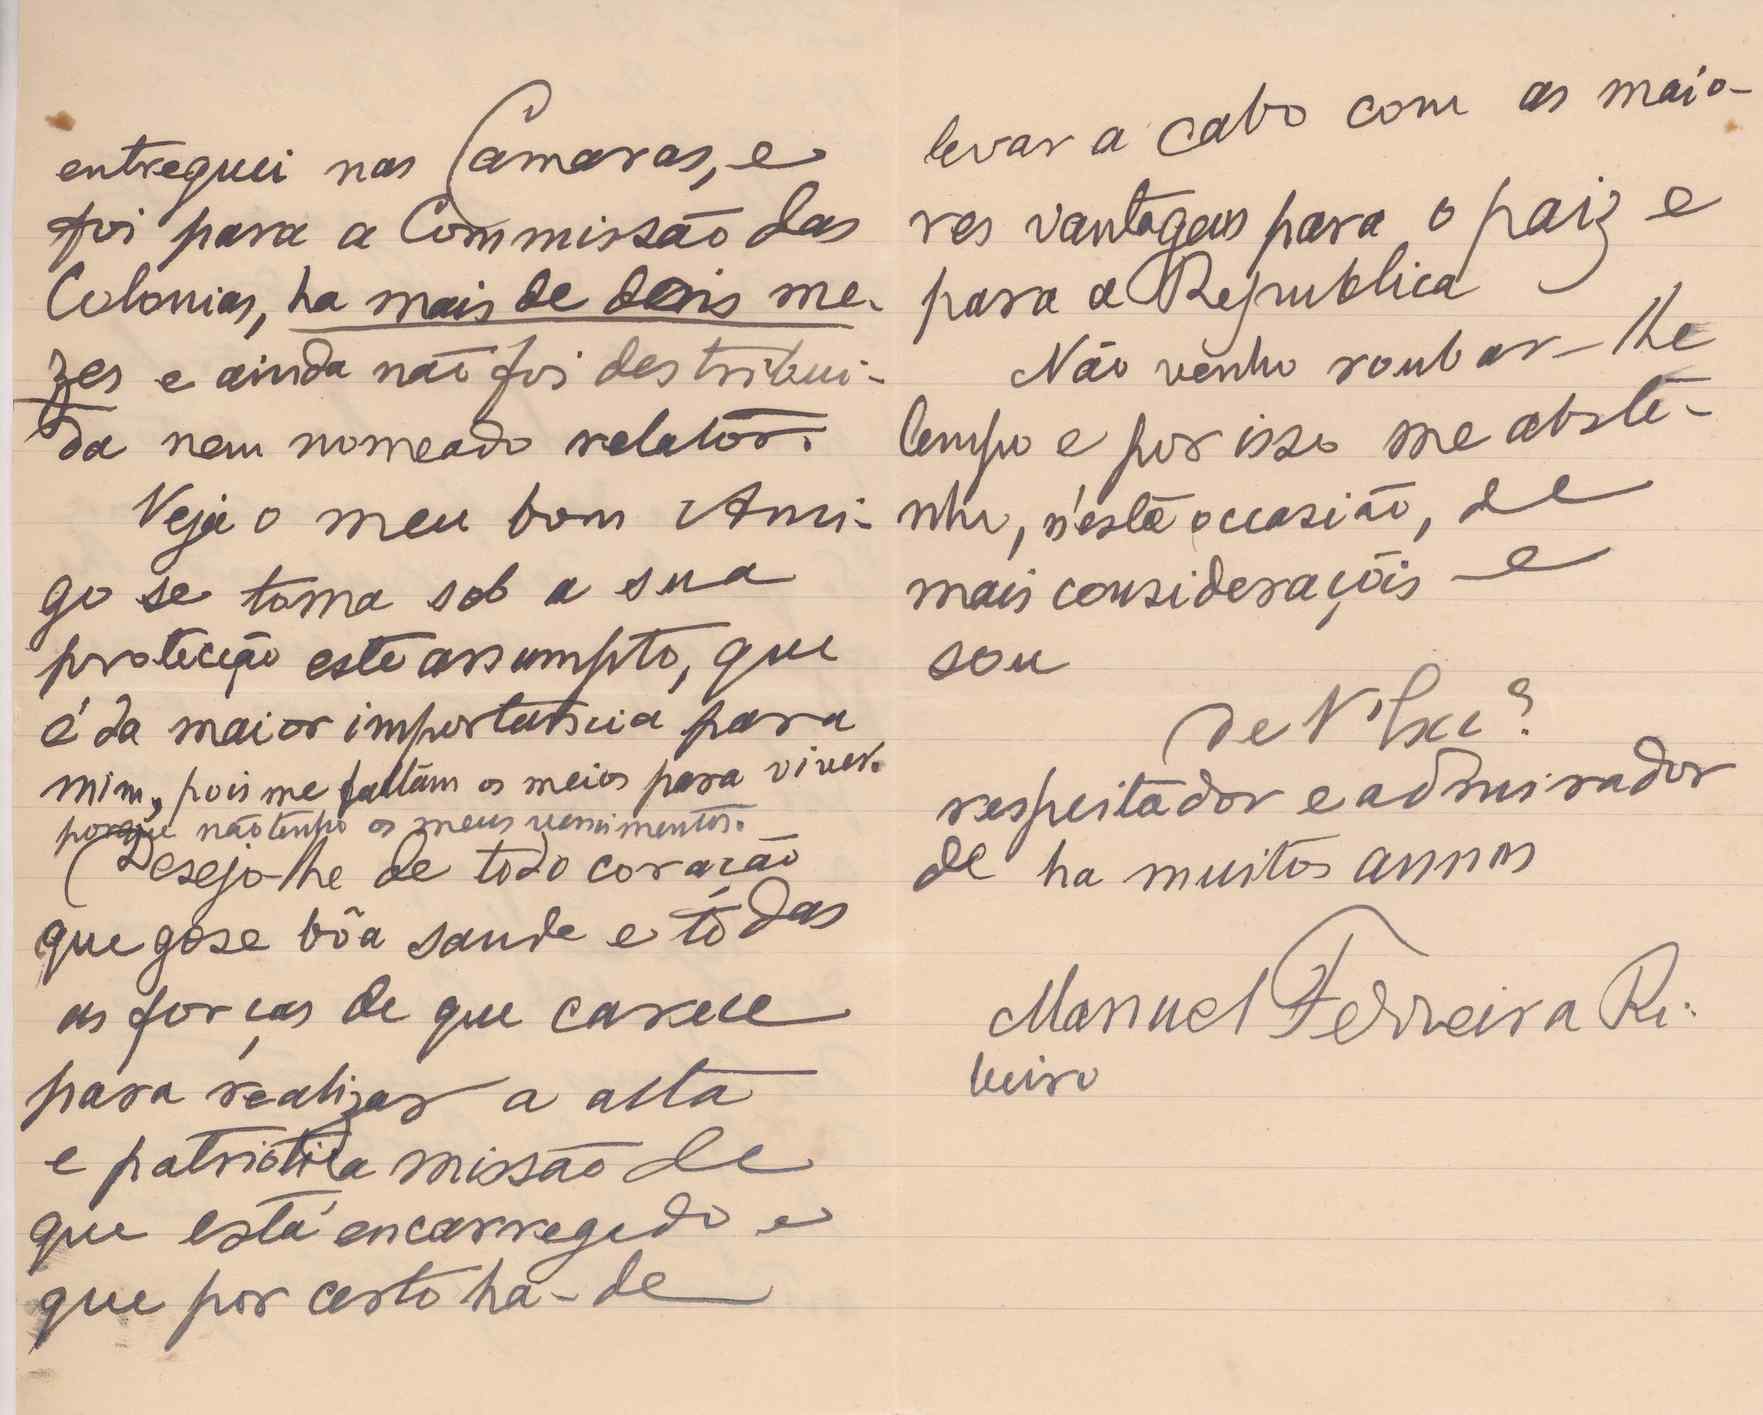 entreguei nas Camaras, e
foi para a Commissão das
Colonias, ha mais de dois me-
zes e ainda não foi destribui-
da nem nomeado relatôr.
Veja o meu bom Ami-
go se toma sob a sua
protecção este assumpto, que
é da maior importancia para
mim, pois me faltam os meios para viver.
porque não tenho os meus vencimentos.
Desejo-lhe de todo coração
que gose bôa saude e tôdas
as forças de que carece
para realizar a alta
e patriotica missão de
que está encarregado e
que por certo ha-de
levar a cabo com as maio-
res vantagens para o paiz e
para a Republica
Não venho roubar-lhe
tempo e por isso me abste-
nho, n'esta occasião, de
mais considerações e
sou
de V. Exc.ª
respeitador e admirador
de ha muitos annos
Manuel Ferreira Ri-
beiro